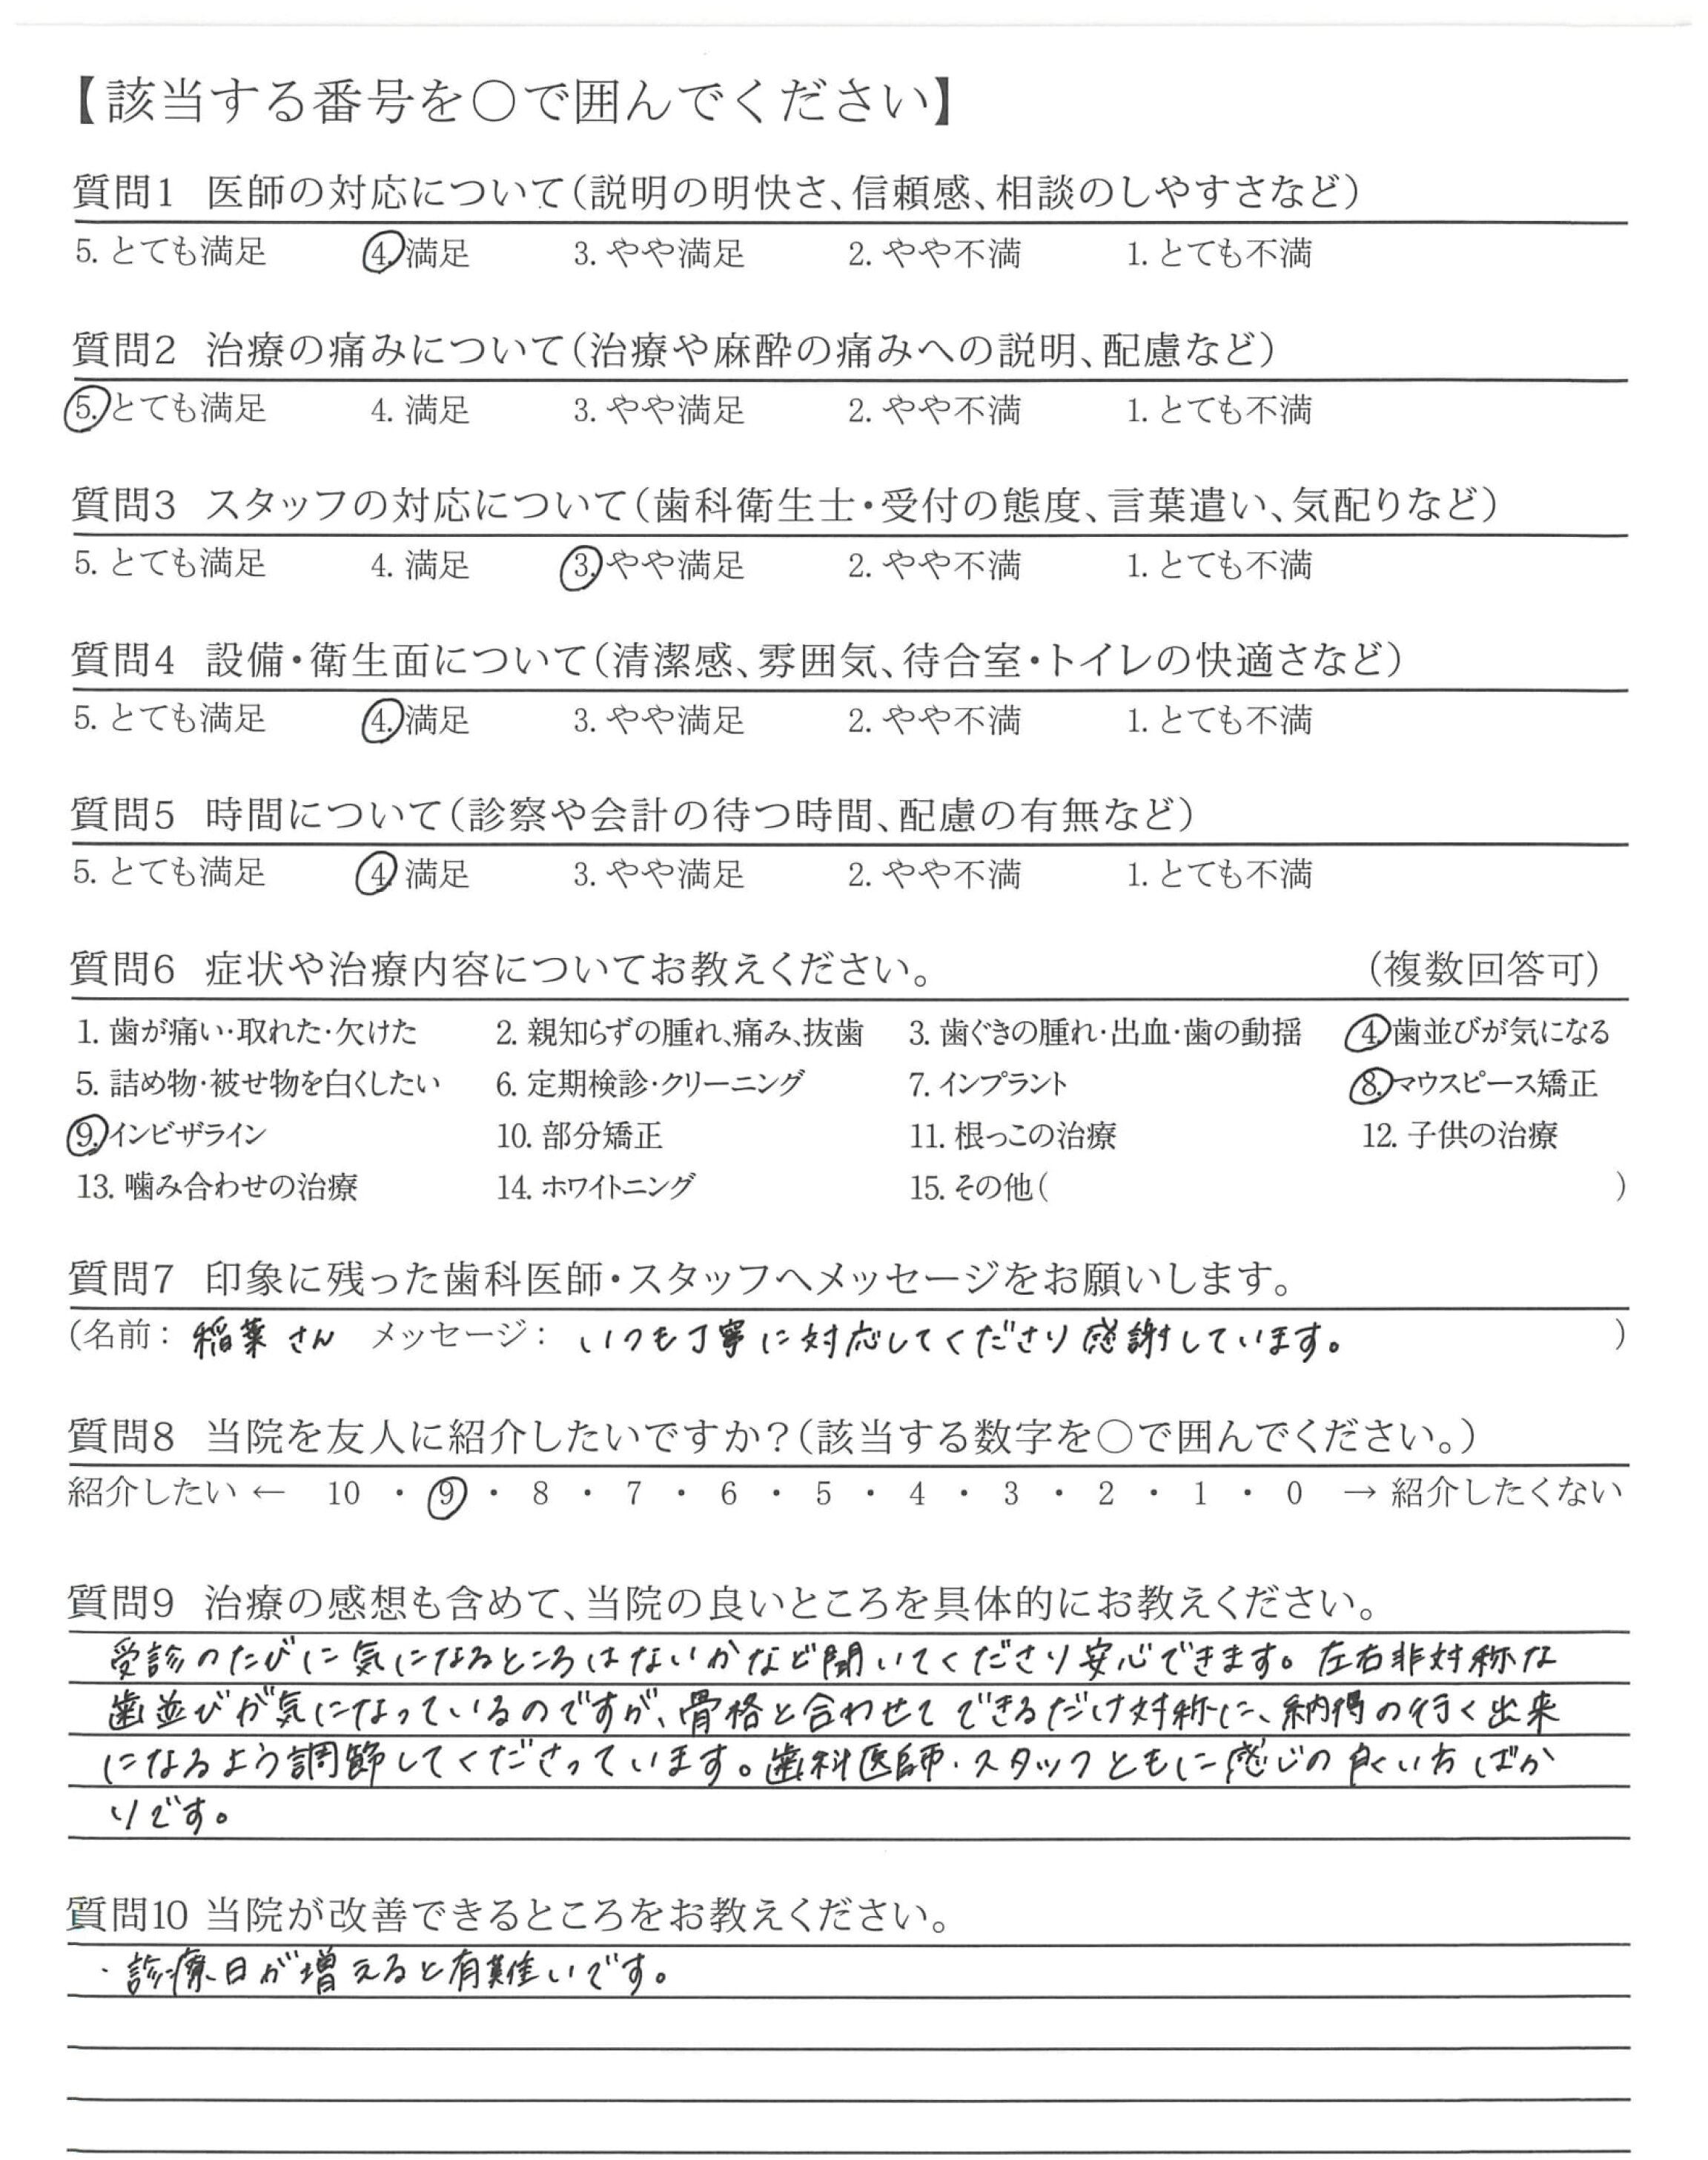 【該当する番号を〇で囲んでください】
質問1 医師の対応について（説明の明快さ、信頼感、相談のしやすさなど）
5. とても満足 4. 満足 3. やや満足 2. やや不満 1. とても不満
質問2 治療の痛みについて（治療や麻酔の痛みへの説明、配慮など）
5. とても満足 4. 満足 3. やや満足 2. やや不満 1. とても不満
質問3 スタッフの対応について（歯科衛生士・受付の態度、言葉遣い、気配りなど）
5. とても満足 4. 満足 3. やや満足 2. やや不満 1. とても不満
質問4 設備・衛生面について（清潔感、雰囲気、待合室・トイレの快適さなど）
5. とても満足 4. 満足 3. やや満足 2. やや不満 1. とても不満
質問5 時間について（診察や会計の待つ時間、配慮の有無など）
5. とても満足 4. 満足 3. やや満足 2. やや不満 1. とても不満
質問6 症状や治療内容についてお教えください。 （複数回答可）
1. 歯が痛い・取れた・欠けた 2. 親知らずの腫れ、痛み、抜歯 3. 歯ぐきの腫れ・出血・歯の動揺 4. 歯並びが気になる
5. 詰め物・被せ物を白くしたい 6. 定期検診・クリーニング 7. インプラント 8. マウスピース矯正
9. インビザライン 10. 部分矯正 11. 根っこの治療 12. 子供の治療
13. 噛み合わせの治療 14. ホワイトニング 15. その他（ ）
質問7 印象に残った歯科医師・スタッフへメッセージをお願いします。
（名前： 稲葉さん メッセージ： いつも丁寧に対応してくださり感謝しています。 ）
質問8 当院を友人に紹介したいですか？（該当する数字を〇で囲んでください。）
紹介したい ← 10 ・ 9 ・ 8 ・ 7 ・ 6 ・ 5 ・ 4 ・ 3 ・ 2 ・ 1 ・ 0 → 紹介したくない
質問9 治療の感想も含めて、当院の良いところを具体的にお教えください。
受診のたびに気になるところはないかなど聞いてくださり安心できます。左右非対称な
歯並びが気になっているのですが、骨格と合わせてできるだけ対称に、納得の行く出来
になるよう調節してくださっています。歯科医師・スタッフともに感じの良い方ばか
りです。
質問10 当院が改善できるところをお教えください。
・診療日が増えると有難いです。